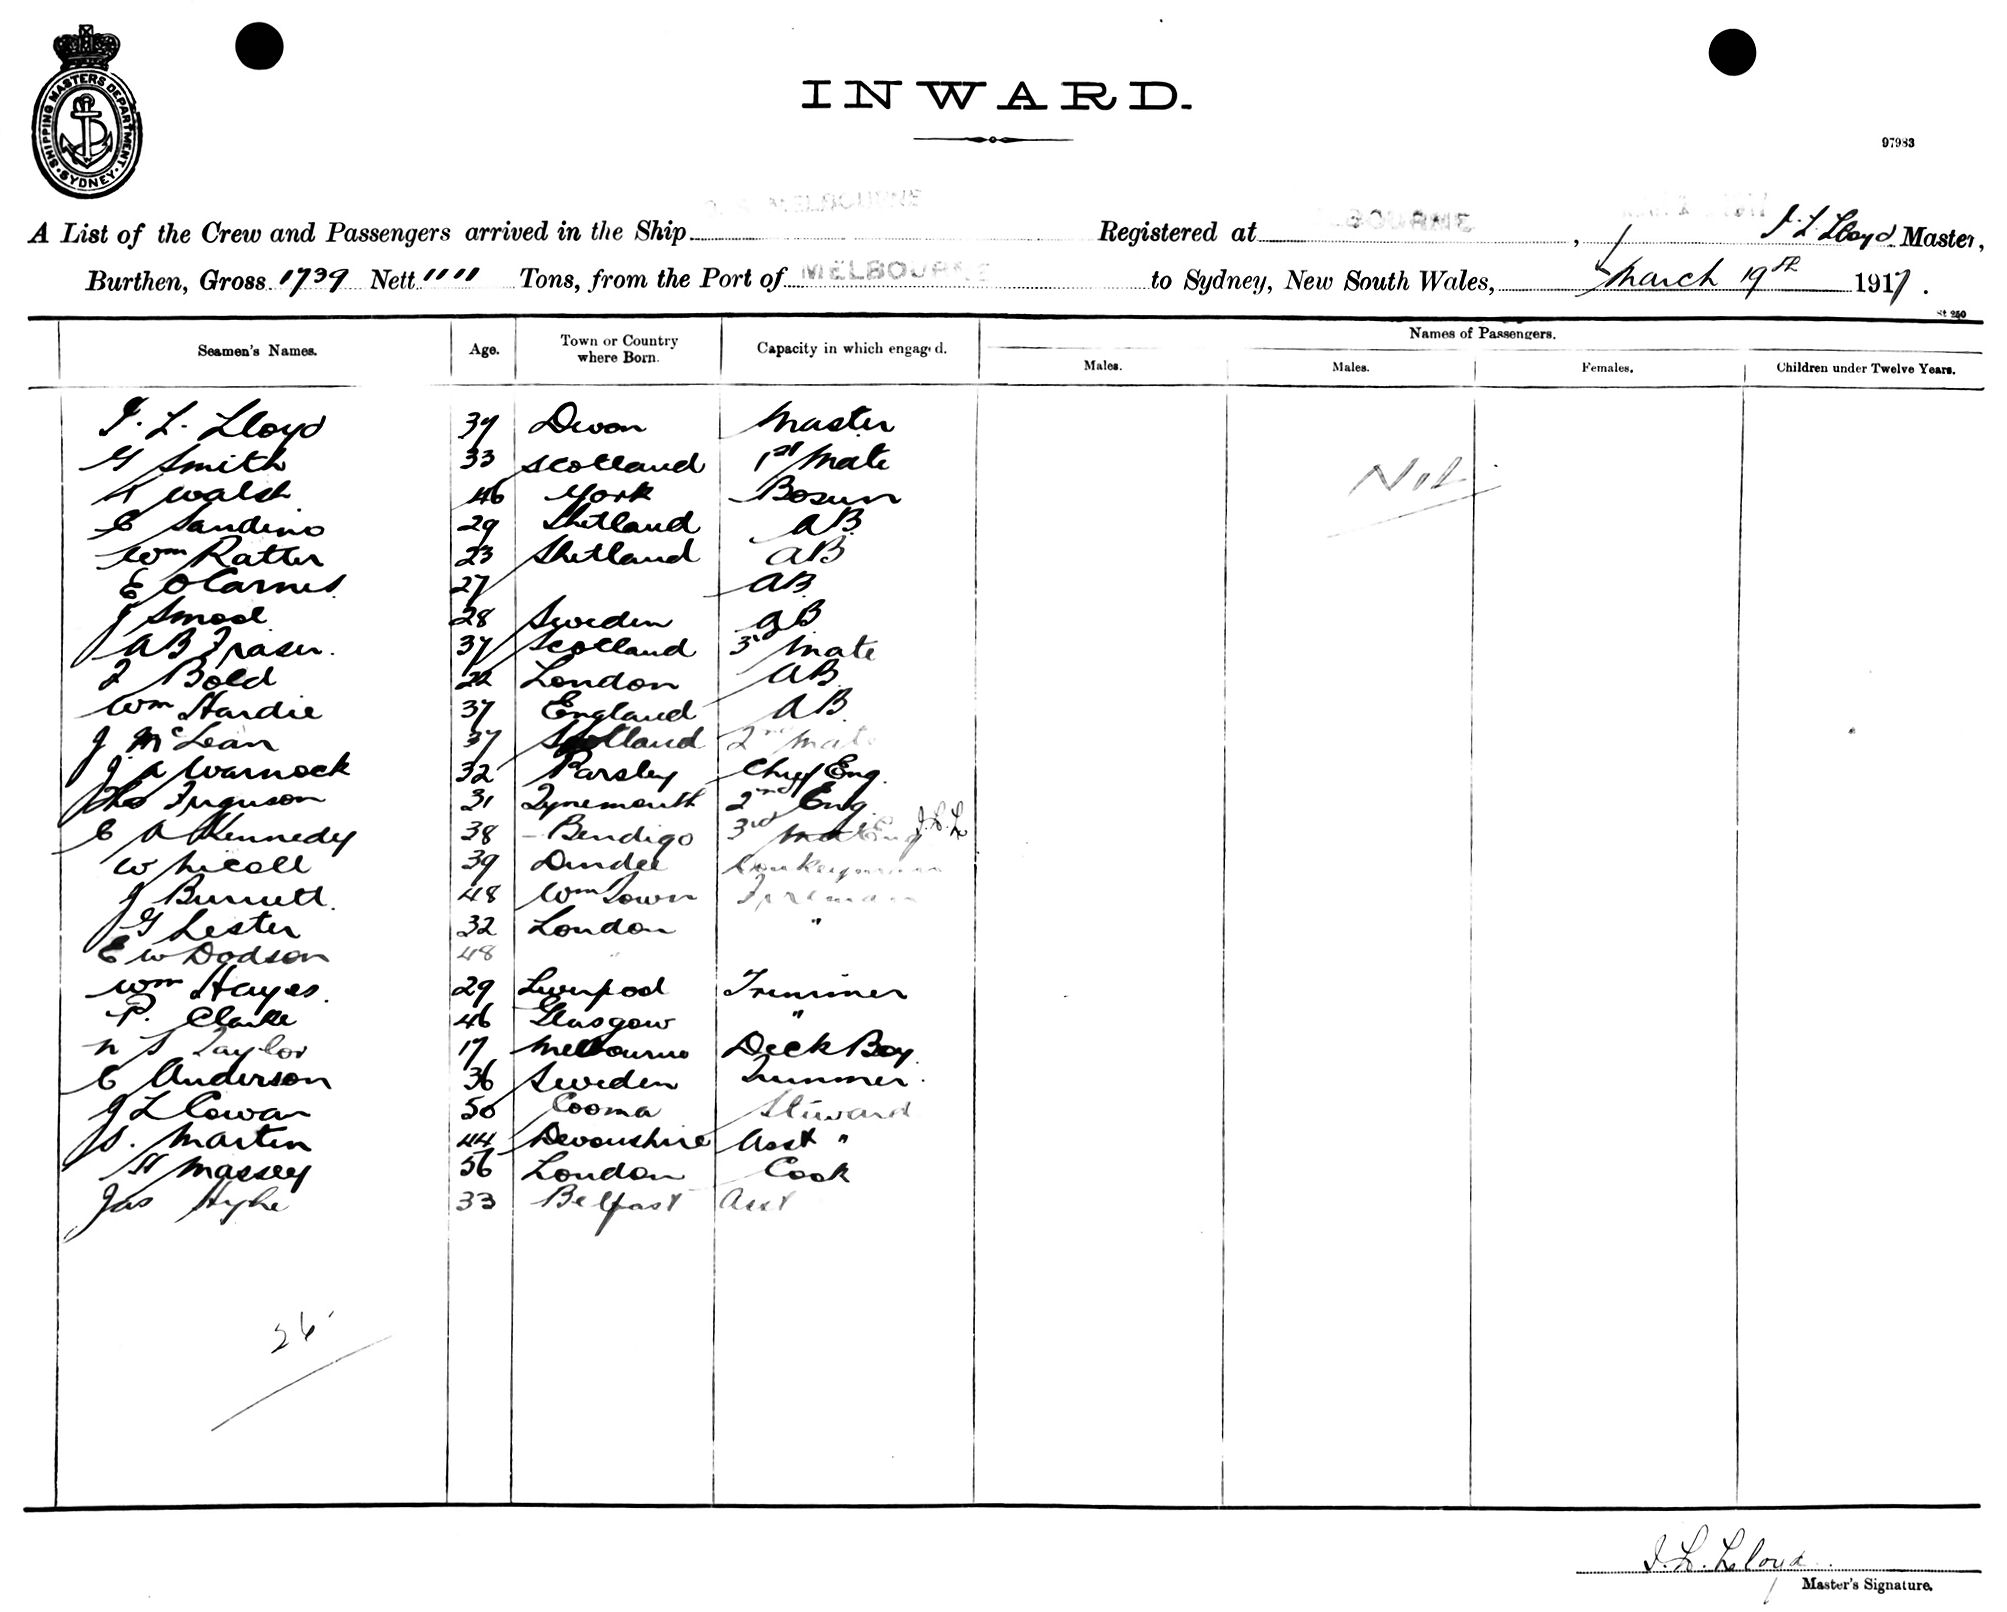 SHIPPING MASTERS DEPARTMENT
SYDNEY
INWARD.
97983
A List of the Crew and Passengers arrived in the Ship Registered at , J. L. Lloyd Master,
Burthen, Gross 1739 Nett """" Tons, from the Port of MELBOURNE to Sydney, New South Wales, March 19th 1917.
St 250
Seamen's Names. Age. Town or Country where Born. Capacity in which engaged. Names of Passengers.
Males. Males. Females. Children under Twelve Years.
J. L. Lloyd 37 Devon Master
G Smith 33 Scotland 1st Mate
K Walsh 46 York Bosun
Nil
C Sandino 29 Shetland AB
Wm Ratter 23 Shetland AB
E OCarnes 27 AB
J Smod 28 Sweden AB
A B Fraser. 37 Scotland 3rd Mate
J Bold 22 London AB
Wm Hardie 37 England AB
J McLean 37 Scotland 2nd Mate
J A Warnock 32 Parsley Chief Eng.
Tho Ferguson 31 Tynemouth 2nd Eng
C A Kennedy 38 Bendigo 3rd Mate Eng J.L.L
W Nicoll 39 Dundee Donkeyman
J Burnett. 48 Wm Town Fireman
G Lester 32 London "
E W Dodson 48 "
Wm Hayes. 29 Liverpool Trimmer
P. Clarke 46 Glasgow "
N S Taylor 17 Melbourne Deck Boy
C Anderson 36 Sweden Trimmer.
J L Cowan 50 Cooma Steward
S. Martin 44 Devonshire Asst "
H Massey 56 London Cook
Jas Hyhe 33 Belfast Asst
26
J. L. Lloyd
Master's Signature.